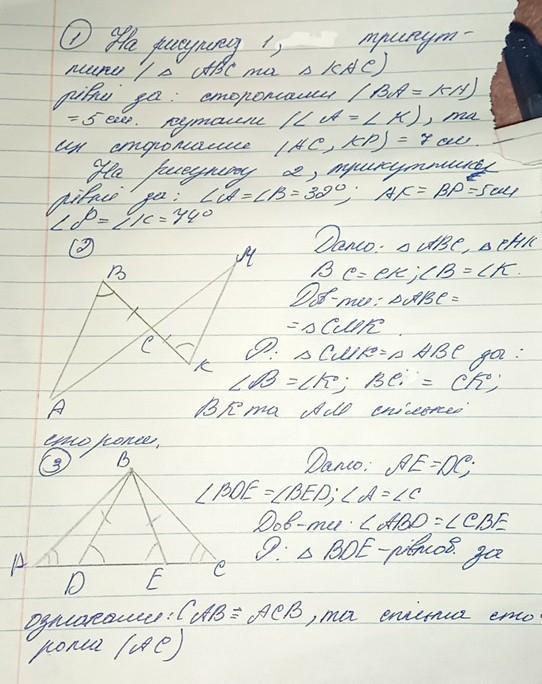 ① На рисунку 1, трикут-
ники (△ ABC та △ KAC)
рівні за: сторонами (BA = KH)
= 5 см. кутами (∠A = ∠K), та
їх сторонами (AC, KP) = 7 см.
На рисунку 2, трикутники
рівні за: ∠A = ∠B = 32°; AK = BP = 5 см
∠P = ∠K = 74°
②
Дано: △ ABC, △ CMK
BC = CK; ∠B = ∠K.
Дов-ти: △ABC =
= △CMK.
Р: △CMK = △ABC за:
∠B = ∠K; BC = CK;
BK та AM спільні
сторони.
B M
C K
A
③
Дано: AE = DC;
∠BDE = ∠BED; ∠A = ∠C
Дов-ти: ∠ABD = ∠CBE
Р: △ BDE - рівноб. за
B
A D E C
ознаками: CAB = ACB, та спільна сто-
рона (AC)